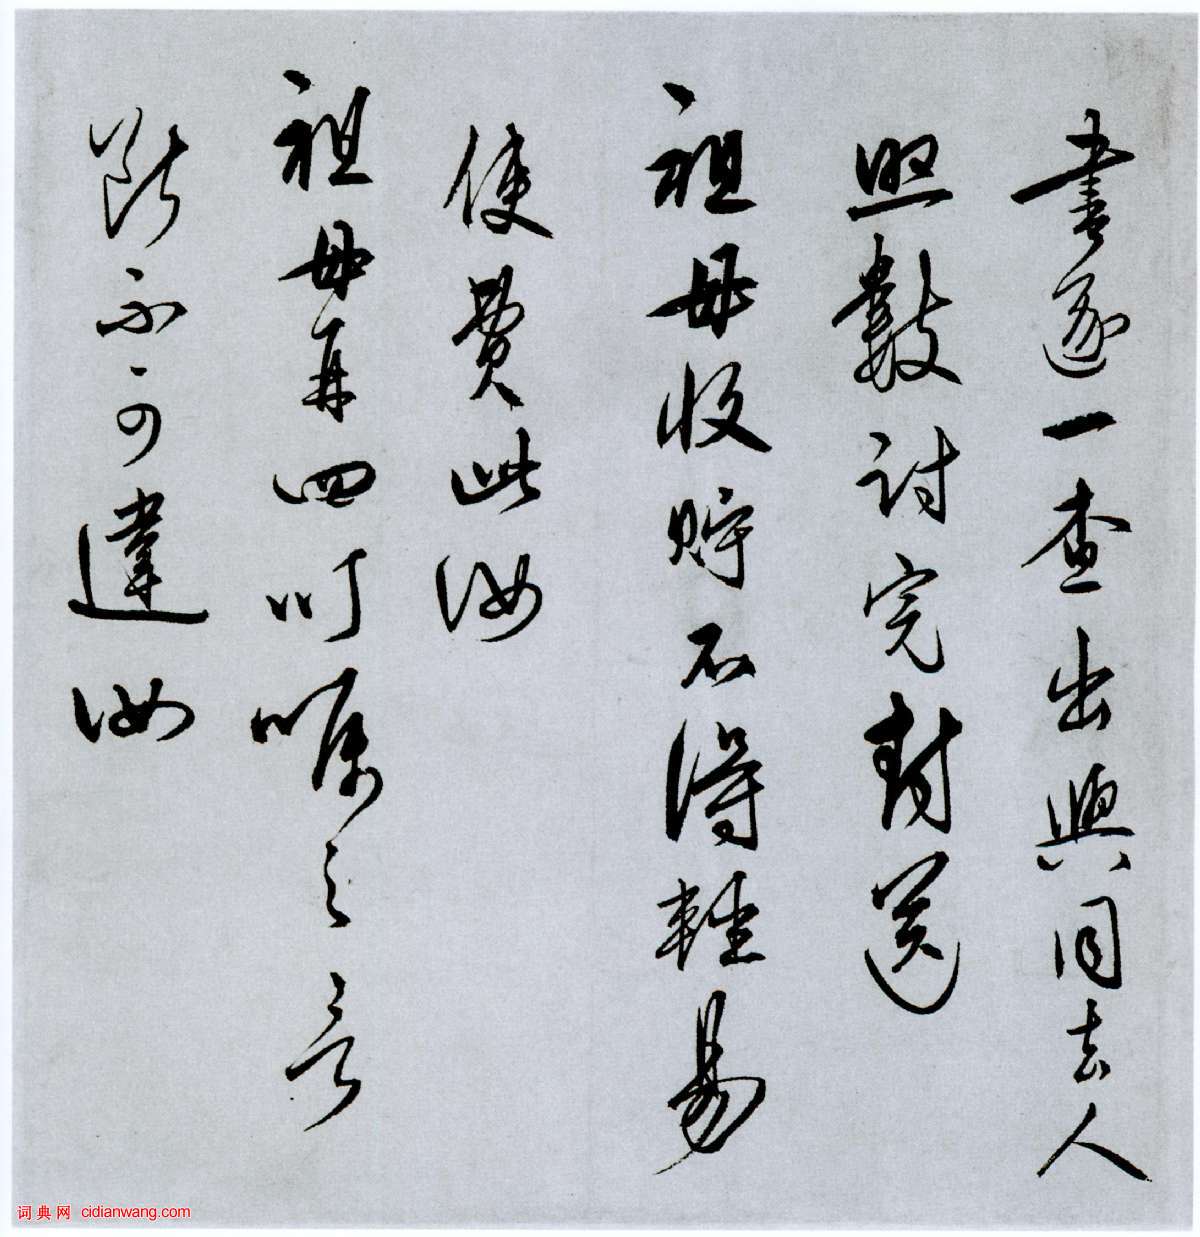 書逐一查出與同去人
照數討完封送
祖母收貯不得輕易
使費此汝
祖母再四叮嘱之言
斷不可違汝
词典网 cidianwang.com